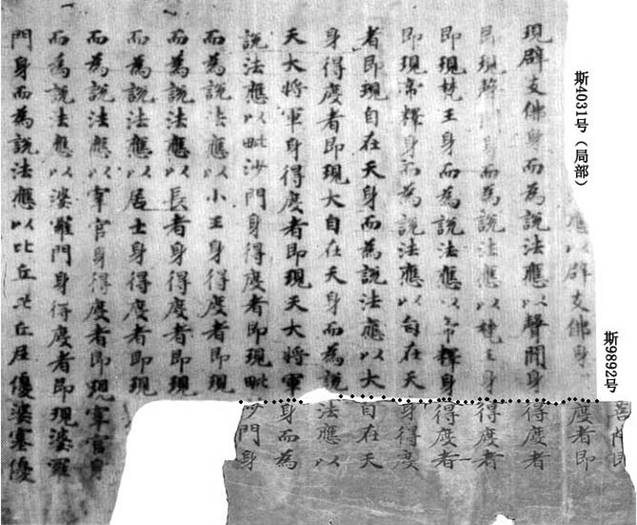 斯4031号（局部）
斯9892号
應以辟支佛身度者即
現辟支佛身而為說法應以聲聞身得度者
即現聲聞身而為說法應以梵王身得度者
即現梵王身而為說法應以帝釋身得度者
即現帝釋身而為說法應以自在天身得度
者即現自在天身而為說法應以大自在天
身得度者即現大自在天身而為說法應以
天大將軍身得度者即現天大將軍身而為
說法應以毗沙門身得度者即現毗沙門身
而為說法應以小王身得度者即現
而為說法應以長者身得度者即現
而為說法應以居士身得度者即現
而為說法應以宰官身得度者即現宰官身
而為說法應以婆羅門身得度者即現婆羅
門身而為說法應以比丘比丘尼優婆塞優